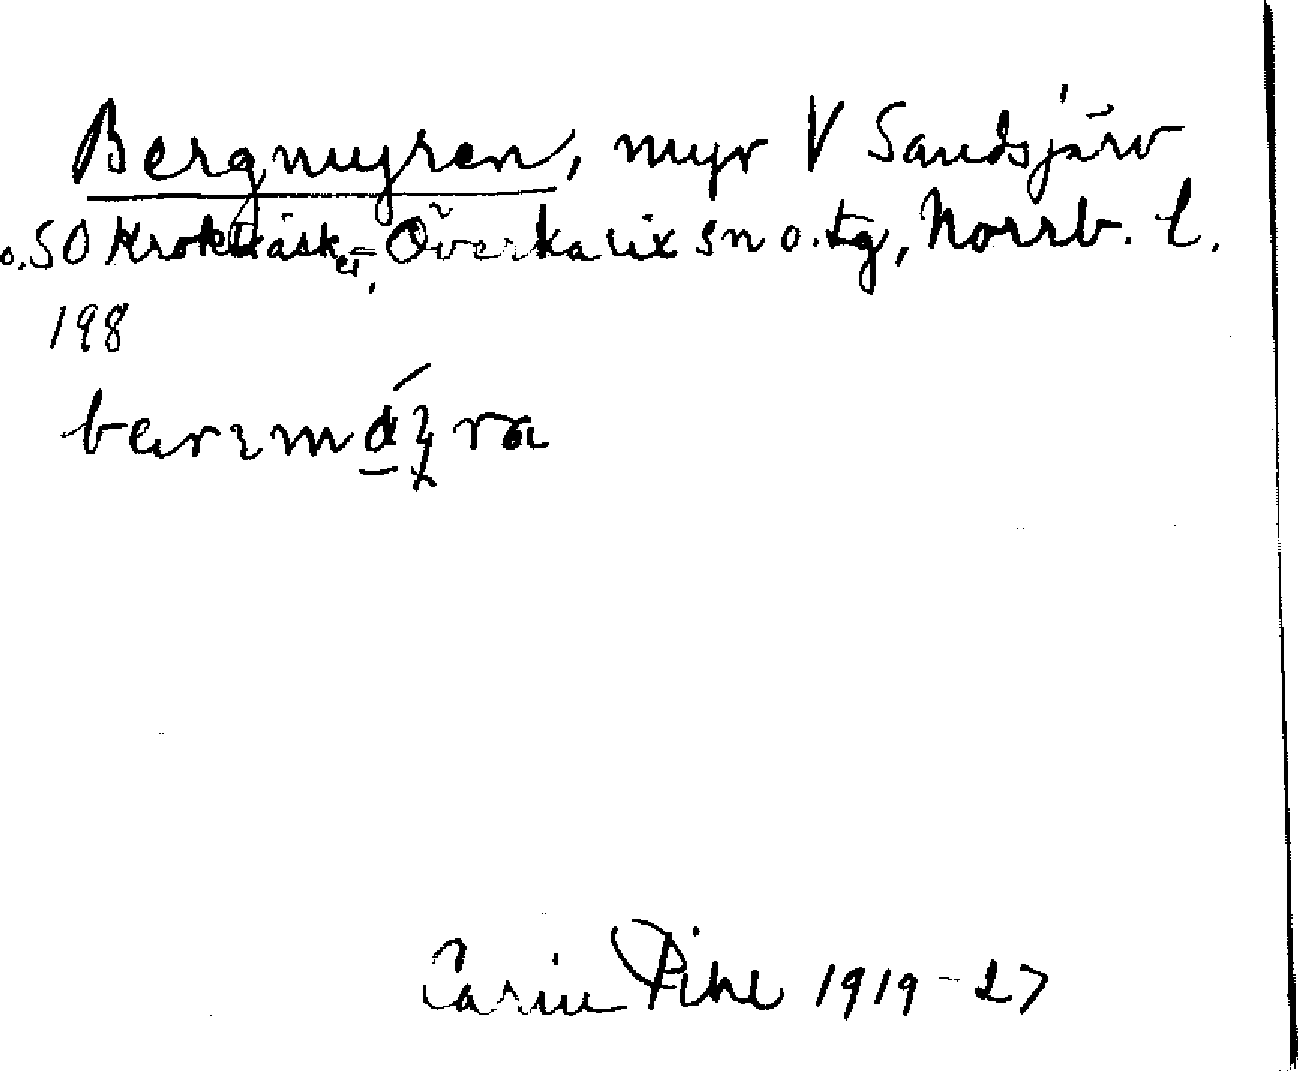 Bergmyren, myr V Sandsjärv
o. SO Krokträsk, Överkalix sn o. tg, Norrb. l.
198
Carin Pihl 1919-27